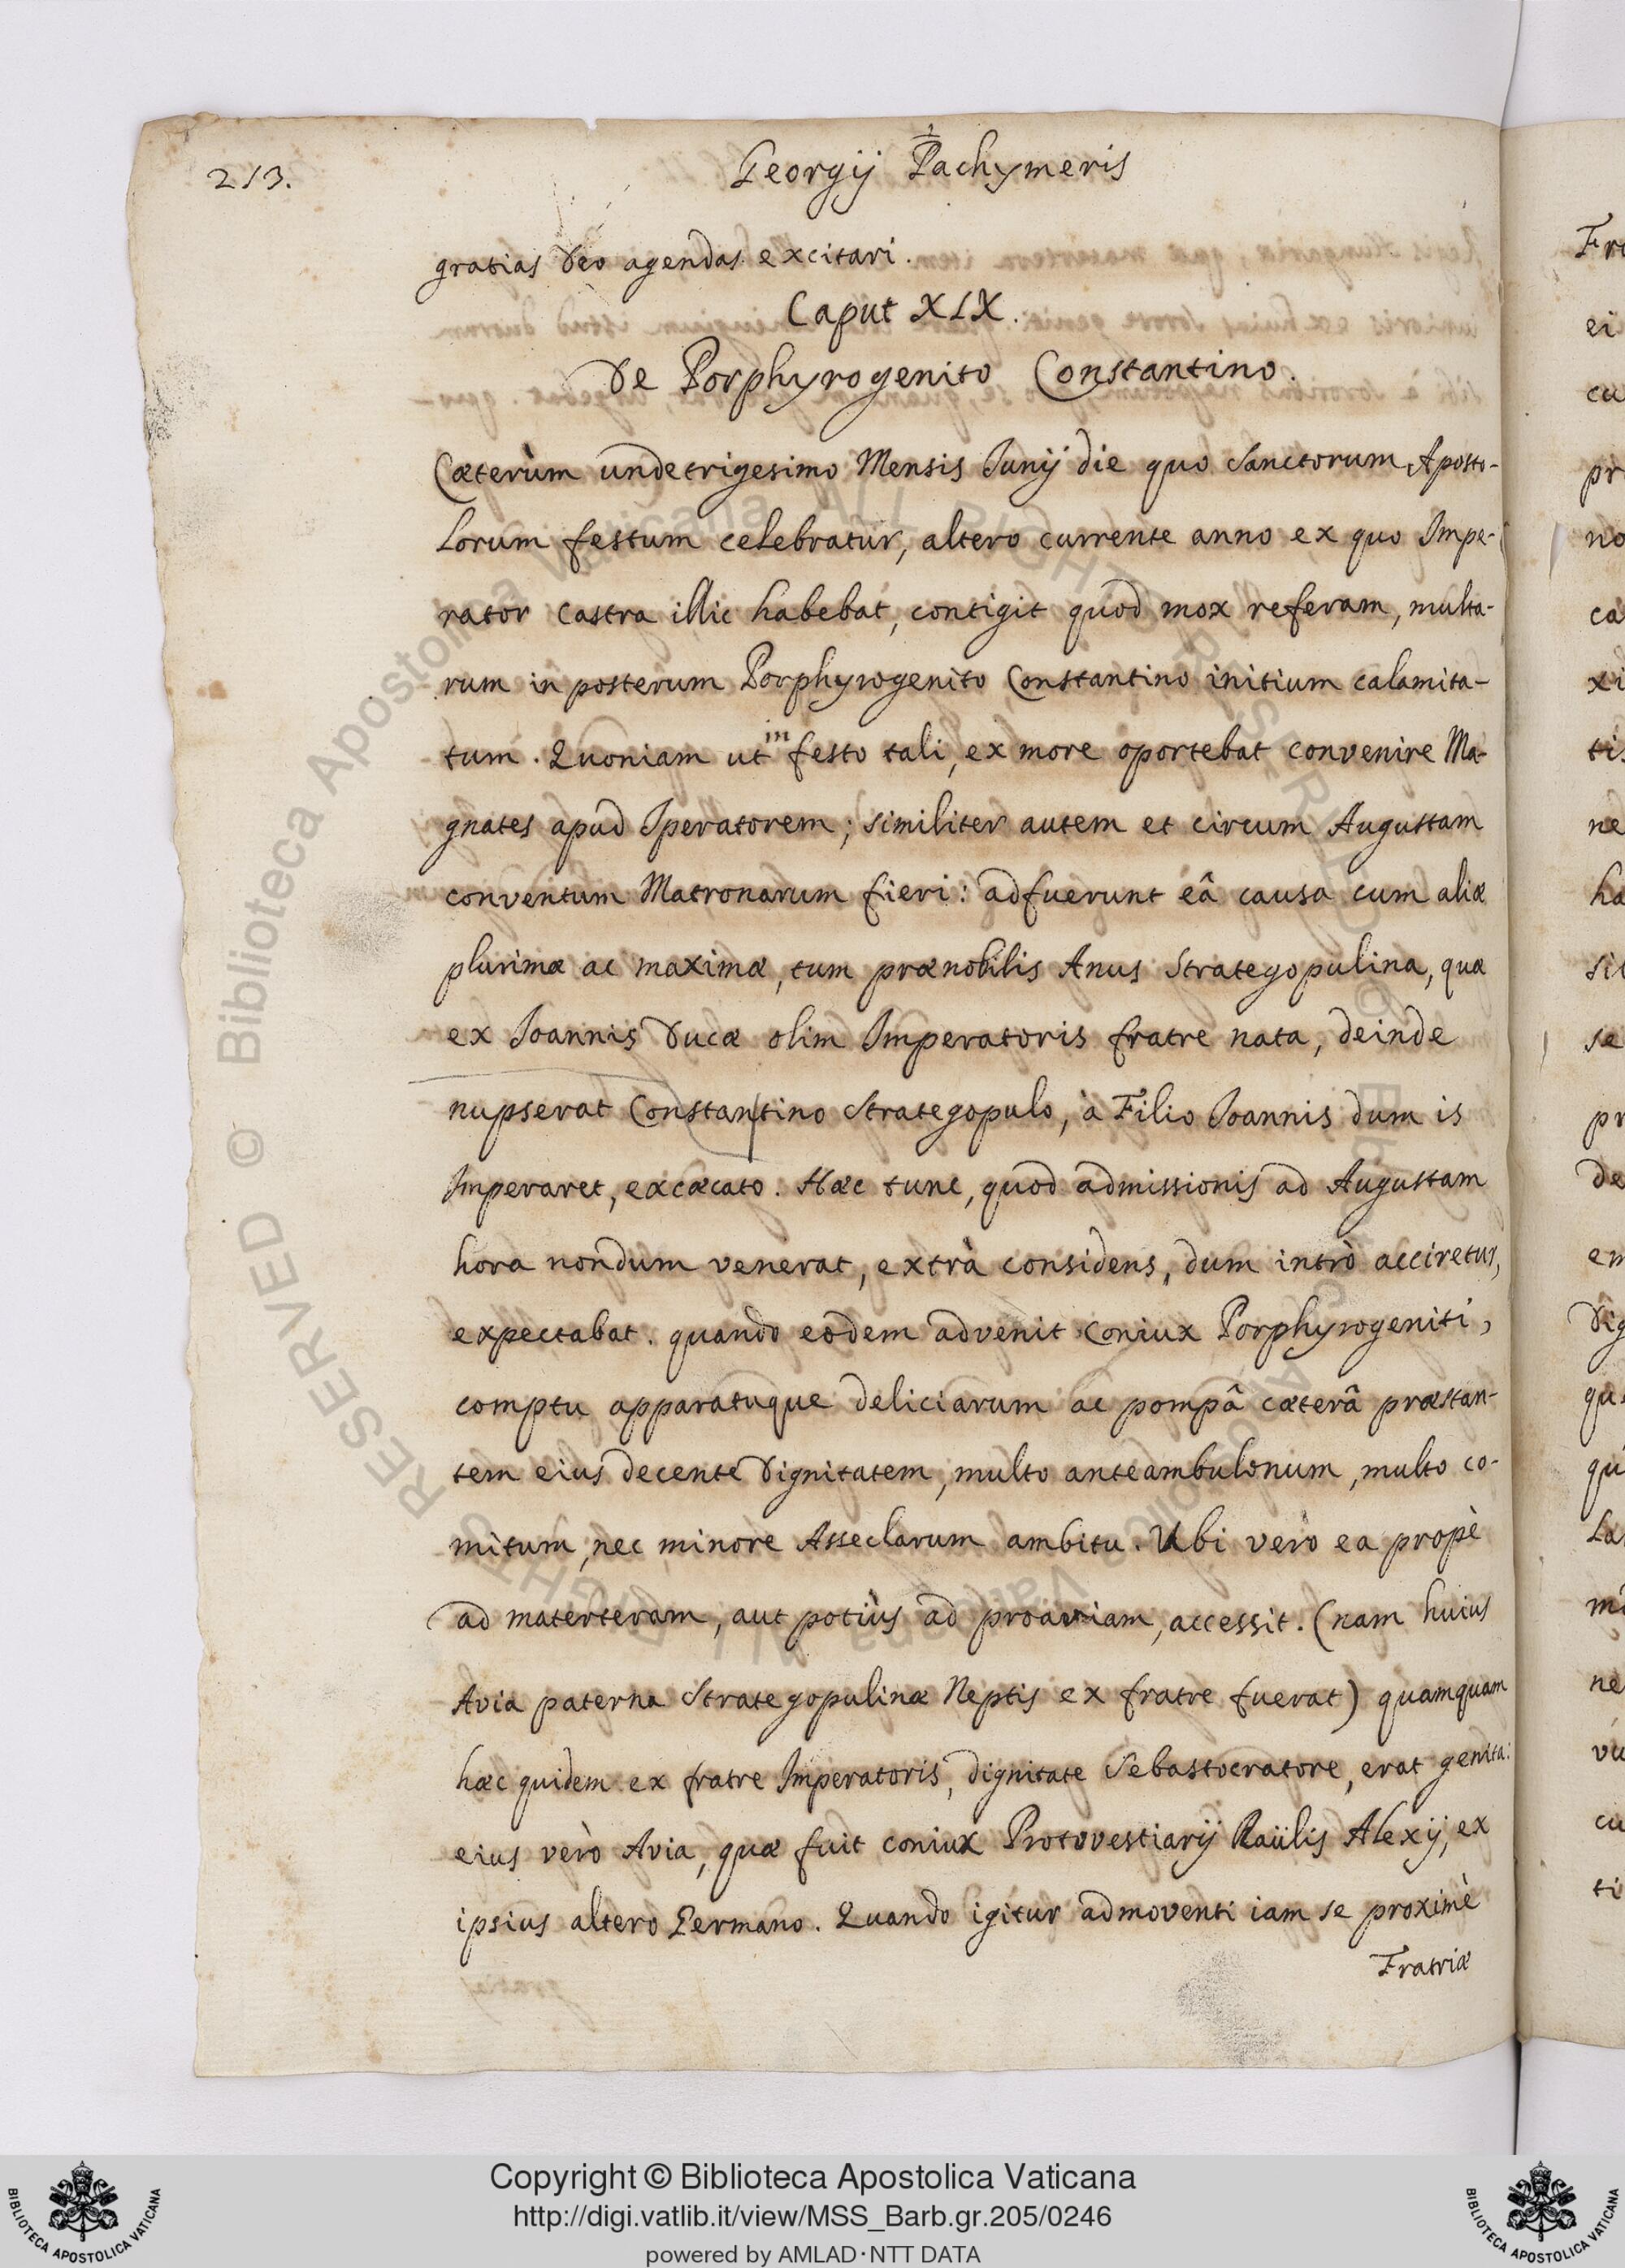 213.
Georgij Pachymeris
gratias Deo agendas excitari.
Caput XIX.
De Porphyrogenito Constantino.
Cæterùm undetrigesimo Mensis Junij die quo Sanctorum Aposto-
lorum festum celebratur, altero currente anno ex quo Impe-
rator castra illic habebat, contigit quod mox referam, multa-
rum in posterum Porphyrogenito Constantino initium calamita-
tum. Quoniam ut in festo tali, ex more oportebat convenire Ma-
gnates apud Iperatorem; similiter autem et circum Augustam
conventum Matronarum fieri: adfuerunt eâ causa cum aliæ
plurimæ ac maximæ, tum prænobilis Anus Strategopulina, quæ
ex Joannis Ducæ olim Imperatoris fratre nata, deinde
nupserat Constantino Strategopulo, à Filio Joannis dum is
Imperaret, excæcato. Hæc tunc, quod admissionis ad Augustam
hora nondum venerat, extrà considens, dum intrò acciretur,
expectabat. quando eòdem advenit coniux Porphyrogeniti,
comptu apparatuque deliciarum ac pompâ cæterâ præstan-
tem eius decente Dignitatem, multo anteambulonum, multo co-
mitum, nec minore Asseclarum ambitu. Ubi verò ea propè
ad materteram, aut potiùs ad proaviam, accessit. (nam huius
Avia paterna Strategopulinæ Neptis ex fratre fuerat) quamquam
hæc quidem ex fratre Imperatoris, dignitate Sebastocratore, erat genita:
eius verò Avia, quæ fuit coniux Protovestiarij Raülis Alexij, ex
ipsius altero Germano. Quando igitur admoventi iam se proximè
Fratriæ
Copyright © Biblioteca Apostolica Vaticana
http://digi.vatlib.it/view/MSS_Barb.gr.205/0246
powered by AMLAD·NTT DATA